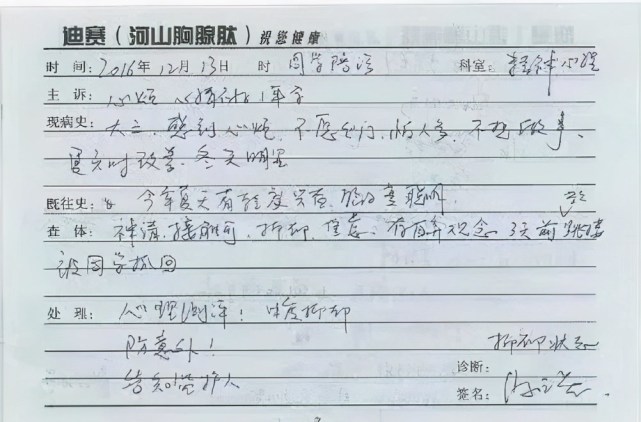 迪赛（河山胸腺肽）祝您健康
时间：2016年12月13日 时 同学陪诊 科室：精神心理
主诉：心烦 1年余
现病史：大三，感到心烦，不愿出门，怕人多，不想做事、
夏天时 冬天明显
既往史：今年夏天有轻度
查体：神清，接触可，抑郁，焦虑，有自弃观念 3天前跳楼
被同学抓回
处理：心理测评：中度抑郁
防意外！
告知监护人
抑郁状态
诊断：
签名：